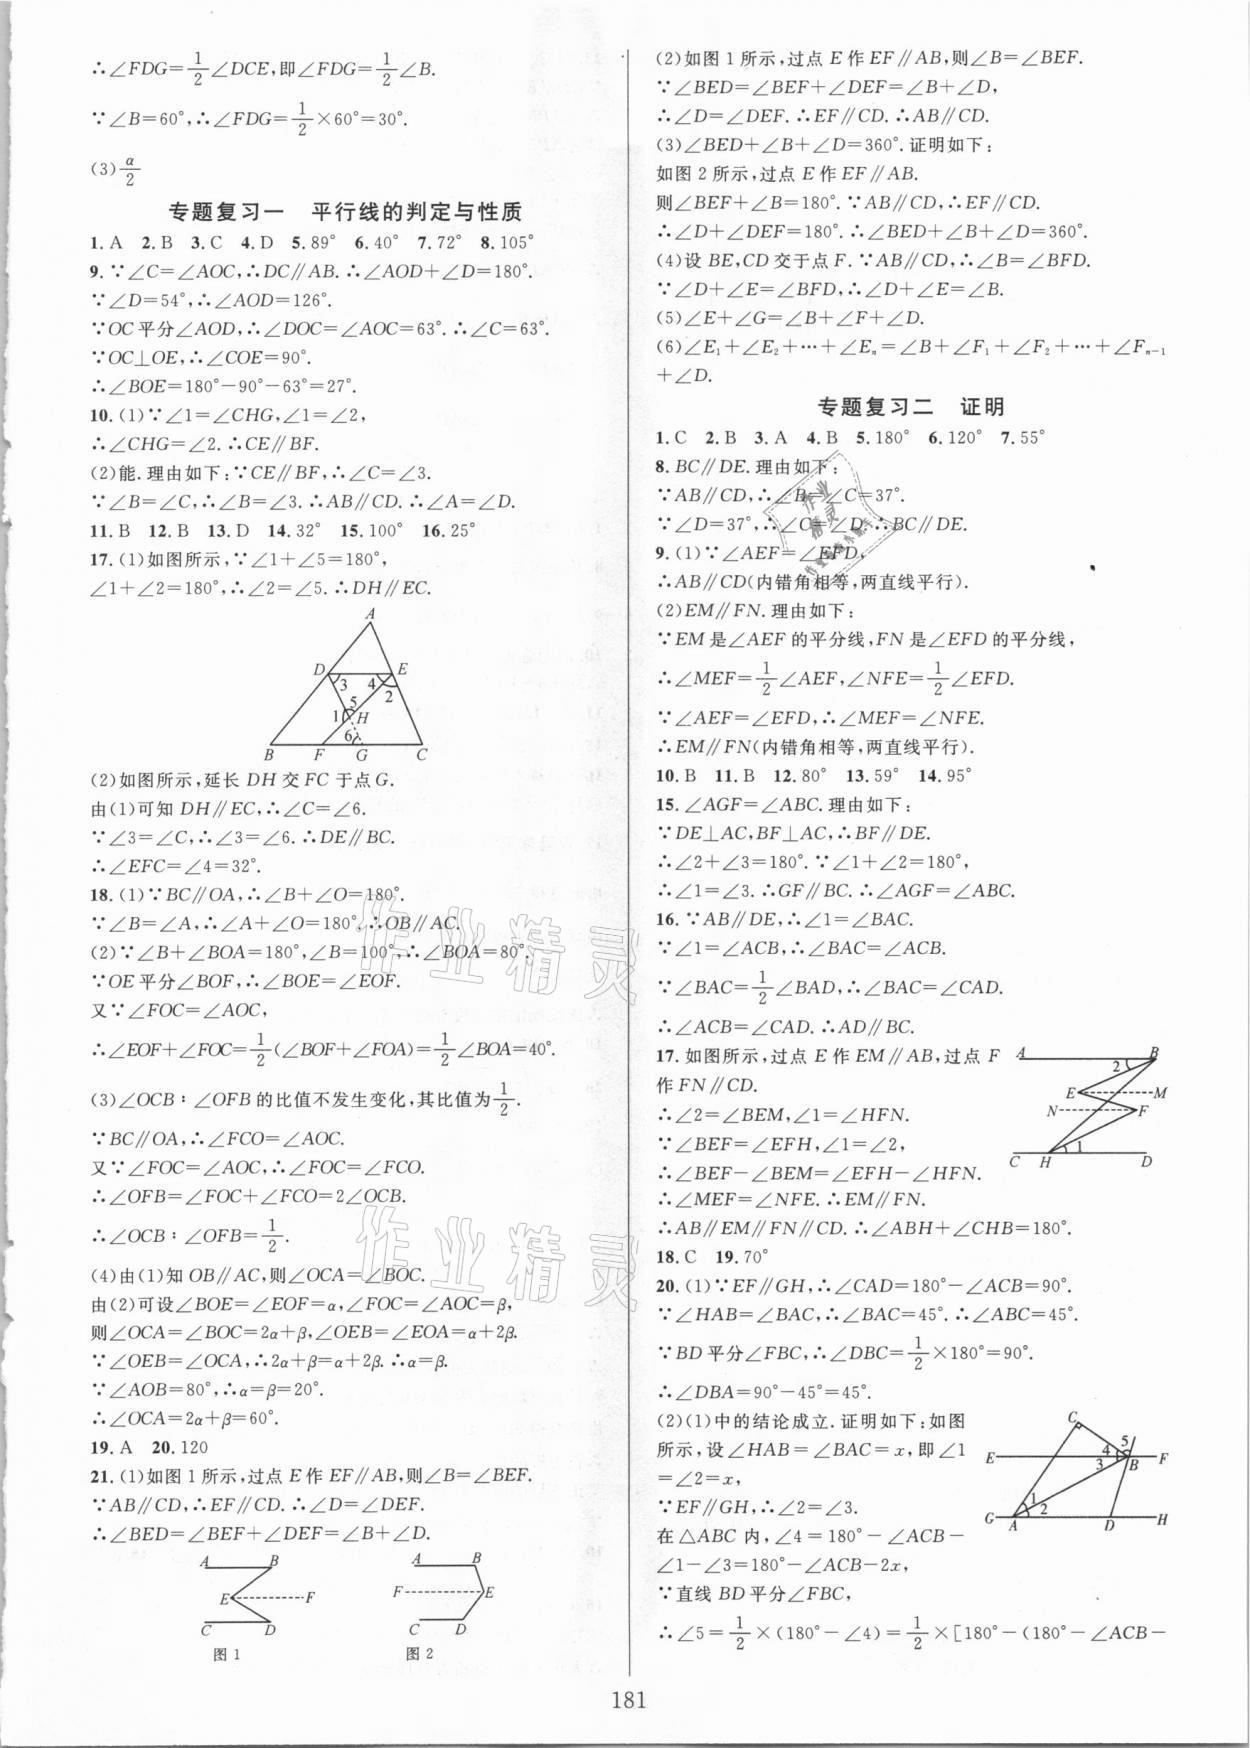 ∴∠FDG=1/2∠DCE,即∠FDG=1/2∠B.
∵∠B=60°,∴∠FDG=1/2×60°=30°.
(3)α/2
专题复习一 平行线的判定与性质
1. A 2. B 3. C 4. D 5. 89° 6. 40° 7. 72° 8. 105°
9. ∵∠C=∠AOC,∴DC∥AB.∴∠AOD+∠D=180°.
∵∠D=54°,∴∠AOD=126°.
∵OC平分∠AOD,∴∠DOC=∠AOC=63°.∴∠C=63°.
∵OC⊥OE,∴∠COE=90°.
∴∠BOE=180°-90°-63°=27°.
10. (1)∵∠1=∠CHG,∠1=∠2,
∴∠CHG=∠2.∴CE∥BF.
(2)能.理由如下:∵CE∥BF,∴∠C=∠3.
∵∠B=∠C,∴∠B=∠3.∴AB∥CD.∴∠A=∠D.
11. B 12. B 13. D 14. 32° 15. 100° 16. 25°
17. (1)如图所示,∵∠1+∠5=180°,
∠1+∠2=180°,∴∠2=∠5.∴DH∥EC.
A
D E
3 4 2
5
1 H
6
B F G C
(2)如图所示,延长DH交FC于点G.
由(1)可知DH∥EC,∴∠C=∠6.
∵∠3=∠C,∴∠3=∠6.∴DE∥BC.
∴∠EFC=∠4=32°.
18. (1)∵BC∥OA,∴∠B+∠O=180°.
∵∠B=∠A,∴∠A+∠O=180°,∴OB∥AC.
(2)∵∠B+∠BOA=180°,∠B=100°,∴∠BOA=80°.
∵OE平分∠BOF,∴∠BOE=∠EOF.
又∵∠FOC=∠AOC,
∴∠EOF+∠FOC=1/2(∠BOF+∠FOA)=1/2∠BOA=40°.
(3)∠OCB∶∠OFB的比值不发生变化,其比值为1/2.
∵BC∥OA,∴∠FCO=∠AOC.
又∵∠FOC=∠AOC,∴∠FOC=∠FCO.
∴∠OFB=∠FOC+∠FCO=2∠OCB.
∴∠OCB∶∠OFB=1/2.
(4)由(1)知OB∥AC,则∠OCA=∠BOC.
由(2)可设∠BOE=∠EOF=α,∠FOC=∠AOC=β,
则∠OCA=∠BOC=2α+β,∠OEB=∠EOA=α+2β.
∵∠OEB=∠OCA,∴2α+β=α+2β.∴α=β.
∵∠AOB=80°,∴α=β=20°.
∴∠OCA=2α+β=60°.
19. A 20. 120
21. (1)如图1所示,过点E作EF∥AB,则∠B=∠BEF.
∵AB∥CD,∴EF∥CD.∴∠D=∠DEF.
∴∠BED=∠BEF+∠DEF=∠B+∠D.
A B
E F
C D
图1
A B
F E
C D
图2
(2)如图1所示,过点E作EF∥AB,则∠B=∠BEF.
∵∠BED=∠BEF+∠DEF=∠B+∠D,
∴∠D=∠DEF.∴EF∥CD.∴AB∥CD.
(3)∠BED+∠B+∠D=360°.证明如下:
如图2所示,过点E作EF∥AB.
则∠BEF+∠B=180°.∵AB∥CD,∴EF∥CD.
∴∠D+∠DEF=180°.∴∠BED+∠B+∠D=360°.
(4)设BE,CD交于点F.∵AB∥CD,∴∠B=∠BFD.
∵∠D+∠E=∠BFD,∴∠D+∠E=∠B.
(5)∠E+∠G=∠B+∠F+∠D.
(6)∠E₁+∠E₂+⋯+∠Eₙ=∠B+∠F₁+∠F₂+⋯+∠Fₙ₋₁
+∠D.
专题复习二 证明
1. C 2. B 3. A 4. B 5. 180° 6. 120° 7. 55°
8. BC∥DE.理由如下:
∵AB∥CD,∴∠B=∠C=37°.
∵∠D=37°,∴∠C=∠D.∴BC∥DE.
9. (1)∵∠AEF=∠EFD,
∴AB∥CD(内错角相等,两直线平行).
(2)EM∥FN.理由如下:
∵EM是∠AEF的平分线,FN是∠EFD的平分线,
∴∠MEF=1/2∠AEF,∠NFE=1/2∠EFD.
∵∠AEF=∠EFD,∴∠MEF=∠NFE.
∴EM∥FN(内错角相等,两直线平行).
10. B 11. B 12. 80° 13. 59° 14. 95°
15. ∠AGF=∠ABC.理由如下:
∵DE⊥AC,BF⊥AC,∴BF∥DE.
∴∠2+∠3=180°.∵∠1+∠2=180°,
∴∠1=∠3.∴GF∥BC.∴∠AGF=∠ABC.
16. ∵AB∥DE,∴∠1=∠BAC.
∵∠1=∠ACB,∴∠BAC=∠ACB.
∵∠BAC=1/2∠BAD,∴∠BAC=∠CAD.
∴∠ACB=∠CAD.∴AD∥BC.
17. 如图所示,过点E作EM∥AB,过点F
作FN∥CD.
∴∠2=∠BEM,∠1=∠HFN.
∵∠BEF=∠EFH,∠1=∠2,
∴∠BEF-∠BEM=∠EFH-∠HFN.
∴∠MEF=∠NFE.∴EM∥FN.
∴AB∥EM∥FN∥CD.∴∠ABH+∠CHB=180°.
A B
2
E M
N F
1
C H D
18. C 19. 70°
20. (1)∵EF∥GH,∴∠CAD=180°-∠ACB=90°.
∵∠HAB=∠BAC,∴∠BAC=45°.∴∠ABC=45°.
∵BD平分∠FBC,∴∠DBC=1/2×180°=90°.
∴∠DBA=90°-45°=45°.
(2)(1)中的结论成立.证明如下:如图
所示,设∠HAB=∠BAC=x,即∠1
=∠2=x,
∵EF∥GH,∴∠2=∠3.
在△ABC内,∠4=180°-∠ACB-
∠1-∠3=180°-∠ACB-2x,
∵直线BD平分∠FBC,
∴∠5=1/2×(180°-∠4)=1/2×[180°-(180°-∠ACB-
C
5
E 4 F
3 B
1
2
G A D H
作业精灵
作业精灵
作业精灵
181